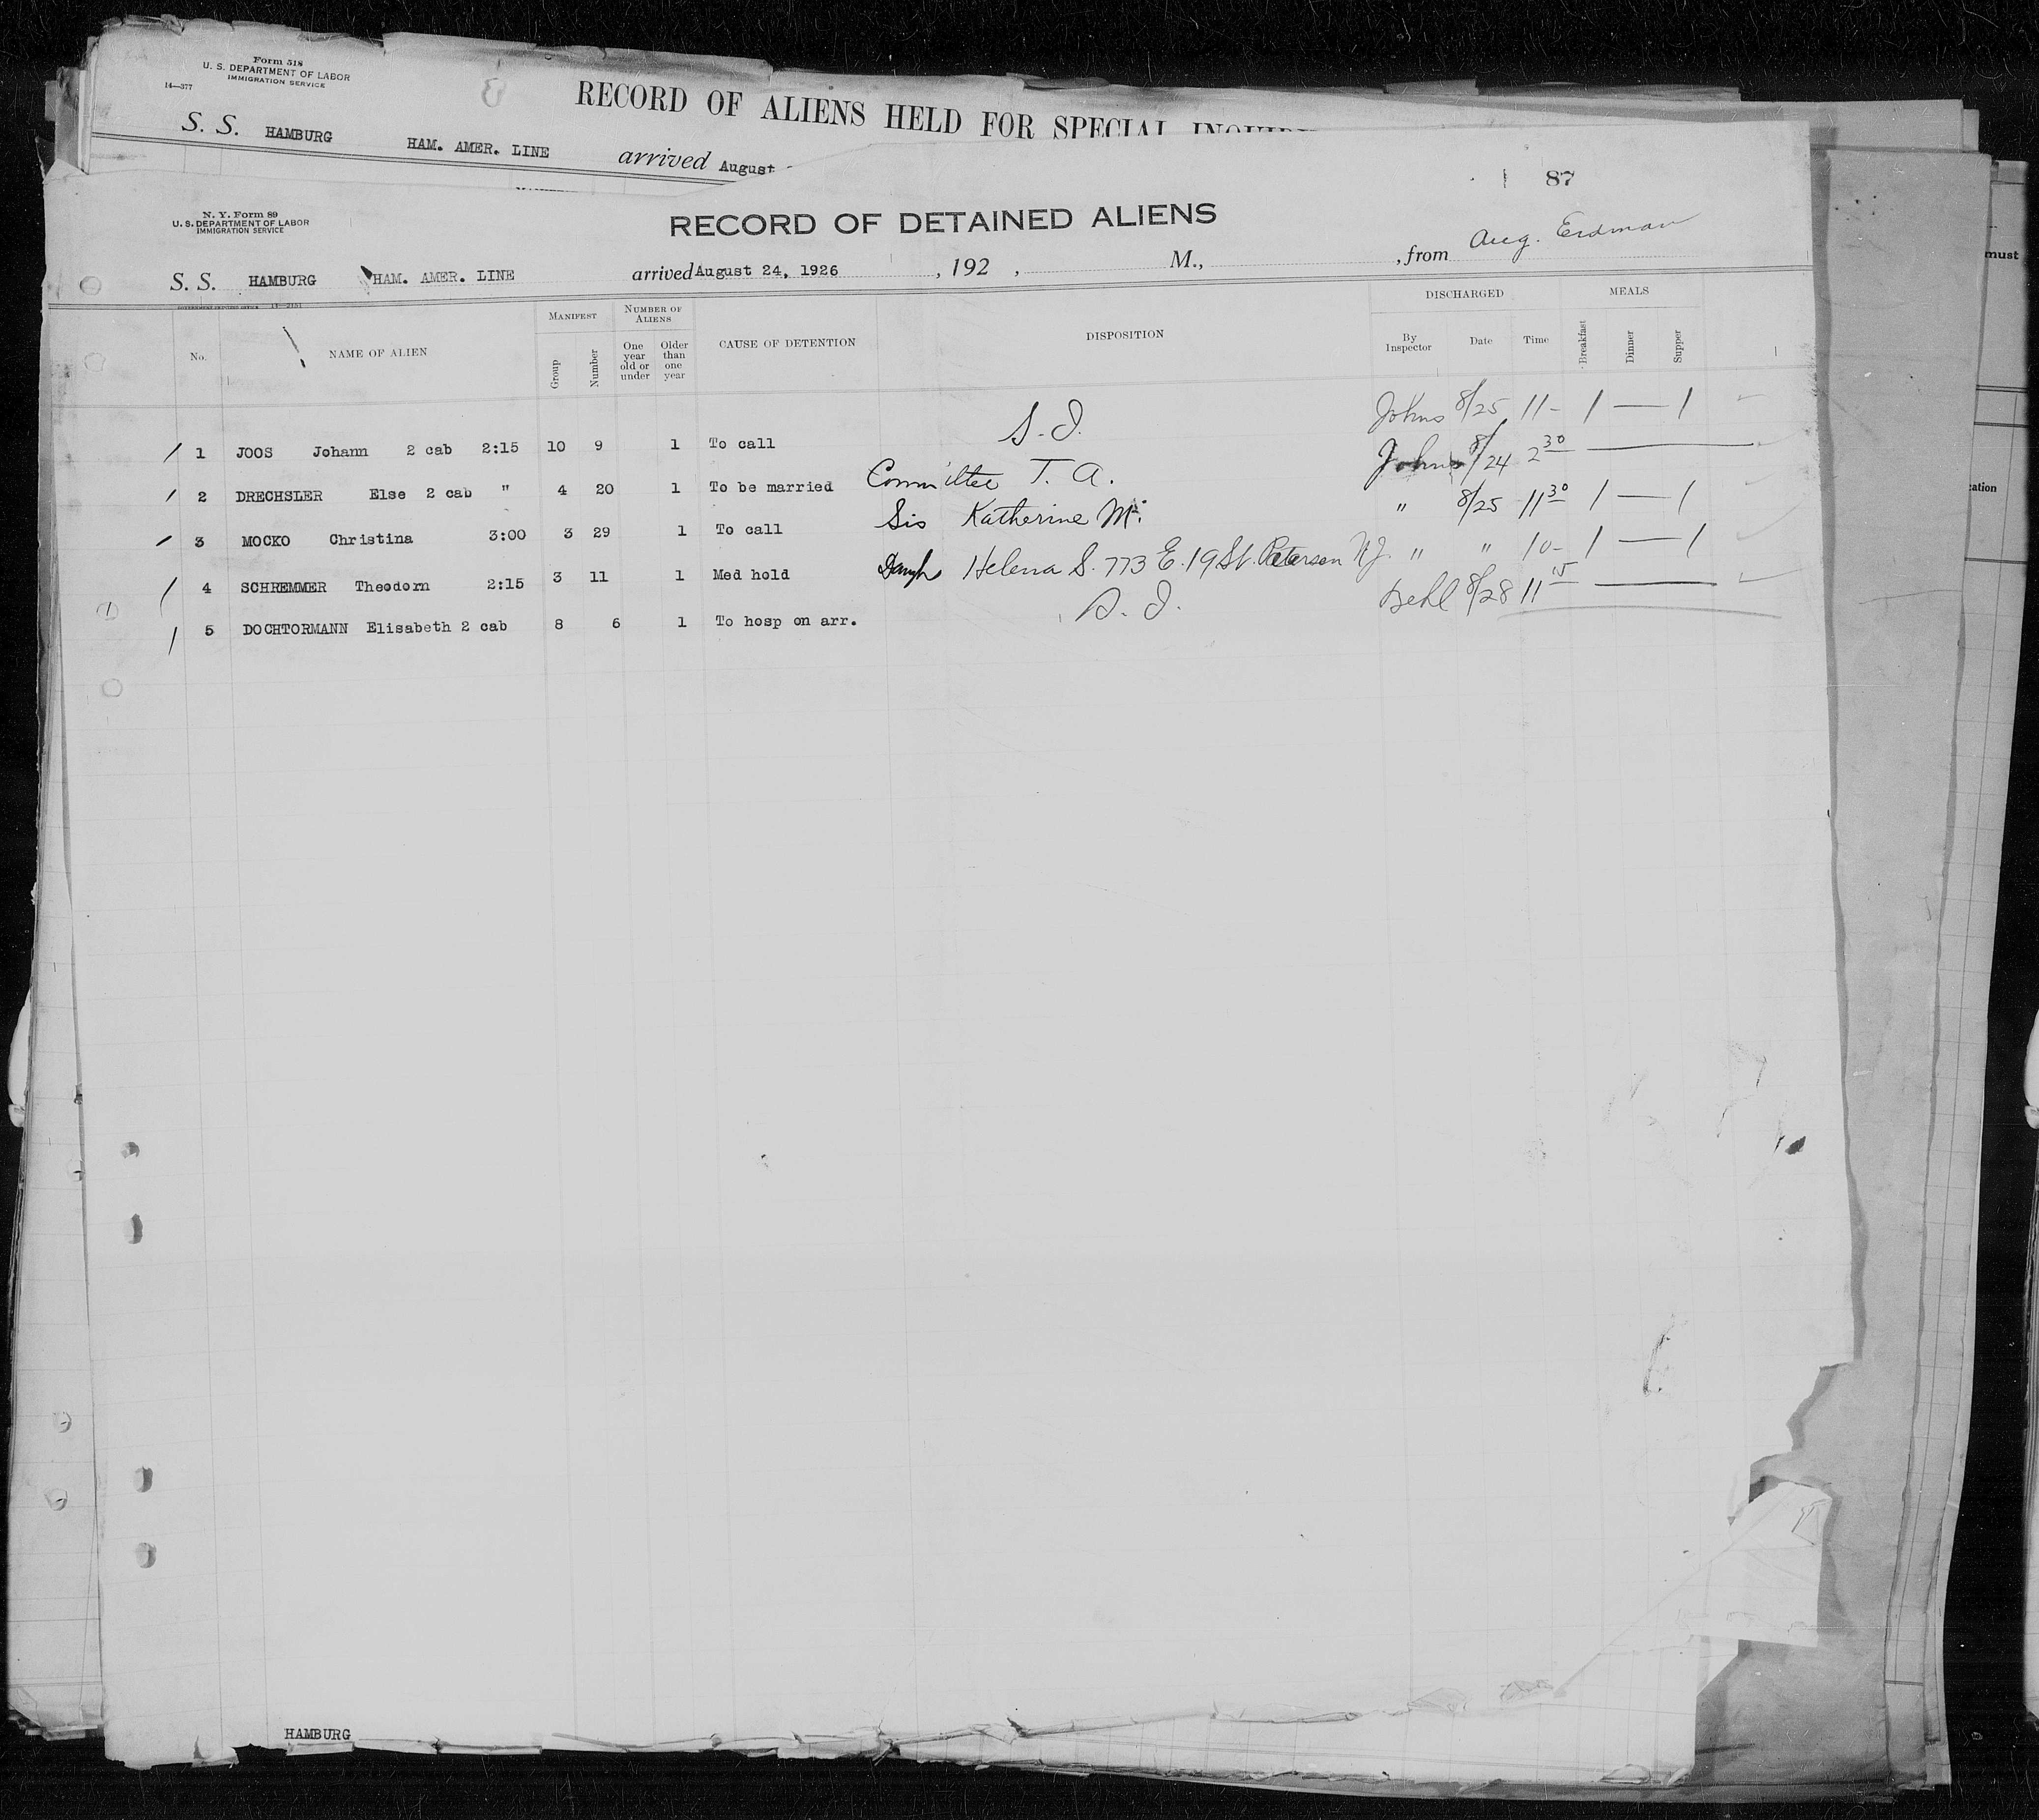 Form 518
U. S. DEPARTMENT OF LABOR
IMMIGRATION SERVICE
14—377
RECORD OF ALIENS HELD FOR SPECIAL INQUIRY
S. S. HAMBURG HAM. AMER. LINE arrived August
87
N. Y. Form 89
U. S. DEPARTMENT OF LABOR
IMMIGRATION SERVICE
RECORD OF DETAINED ALIENS
S. S. HAMBURG HAM. AMER. LINE arrived August 24, 1926 , 192 , M., , from Aug. Erdman
GOVERNMENT PRINTING OFFICE 14—2151
No. NAME OF ALIEN MANIFEST Group Number NUMBER OF ALIENS One year old or under Older than one year CAUSE OF DETENTION DISPOSITION DISCHARGED By Inspector Date Time MEALS Breakfast Dinner Supper
/ 1 JOOS Johann 2 cab 2:15 10 9 1 To call S. I. Johns 8/25 11- 1 — 1
/ 2 DRECHSLER Else 2 cab " 4 20 1 To be married Committee T. A. Johns 8/24 2 30 —
/ 3 MOCKO Christina 3:00 3 29 1 To call Sis Katherine M. " 8/25 11 30 1 — 1
/ 4 SCHREMMER Theodorn 2:15 3 11 1 Med hold Daugh Helena S. 773 E. 19 St. Paterson N.J. " " 10- 1 — 1
/ 5 DOCHTORMANN Elisabeth 2 cab 8 6 1 To hosp on arr. S. I. 8/28 11 15 —
must
HAMBURG